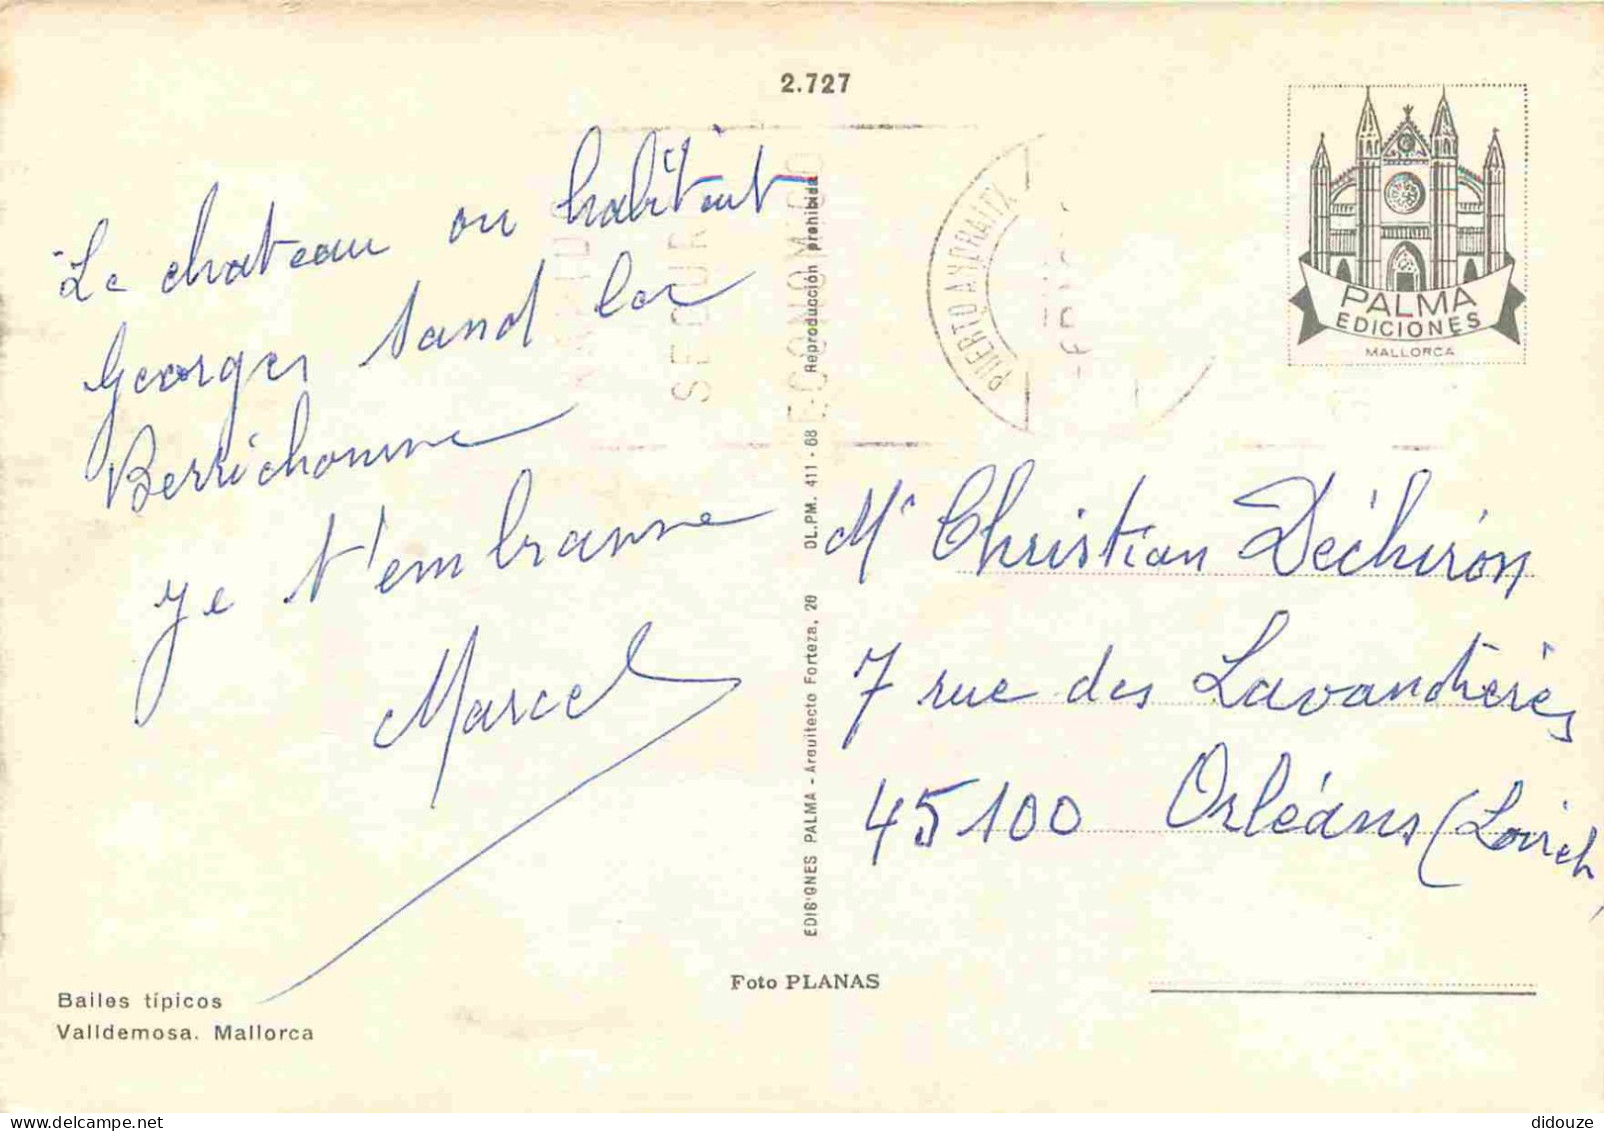 2.727
Le chateau ou habitait
Georges Sand la
Berrichonne
je t'embrasse
Marcel
Bailes típicos
Valldemosa. Mallorca
EDICIONES PALMA - Arquitecto Forteza, 20 DL.PM. 411 - 68 Reproducción prohibida
Foto PLANAS
PUERTO ANDRAITX
SEGUR
ECONOM
PALMA
EDICIONES
MALLORCA
Mr Christian Déchiron
7 rue des Lavandières
45100 Orléans (Loiret)
didouze